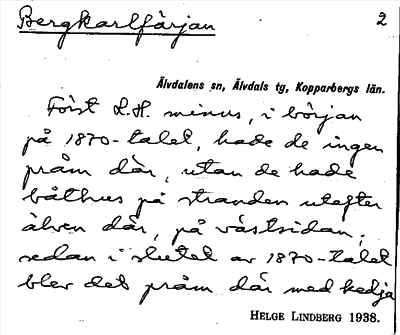 Bergkarlfärjan 2
Älvdalens sn, Älvdals tg, Kopparbergs län.
Först L.H. minns, i början
på 1870-talet, hade de ingen
pråm där, utan de hade
båthus på stranden utefter
älven där, på västsidan,
sedan i slutet av 1870-talet
blev det pråm där med kedja
HELGE LINDBERG 1938.